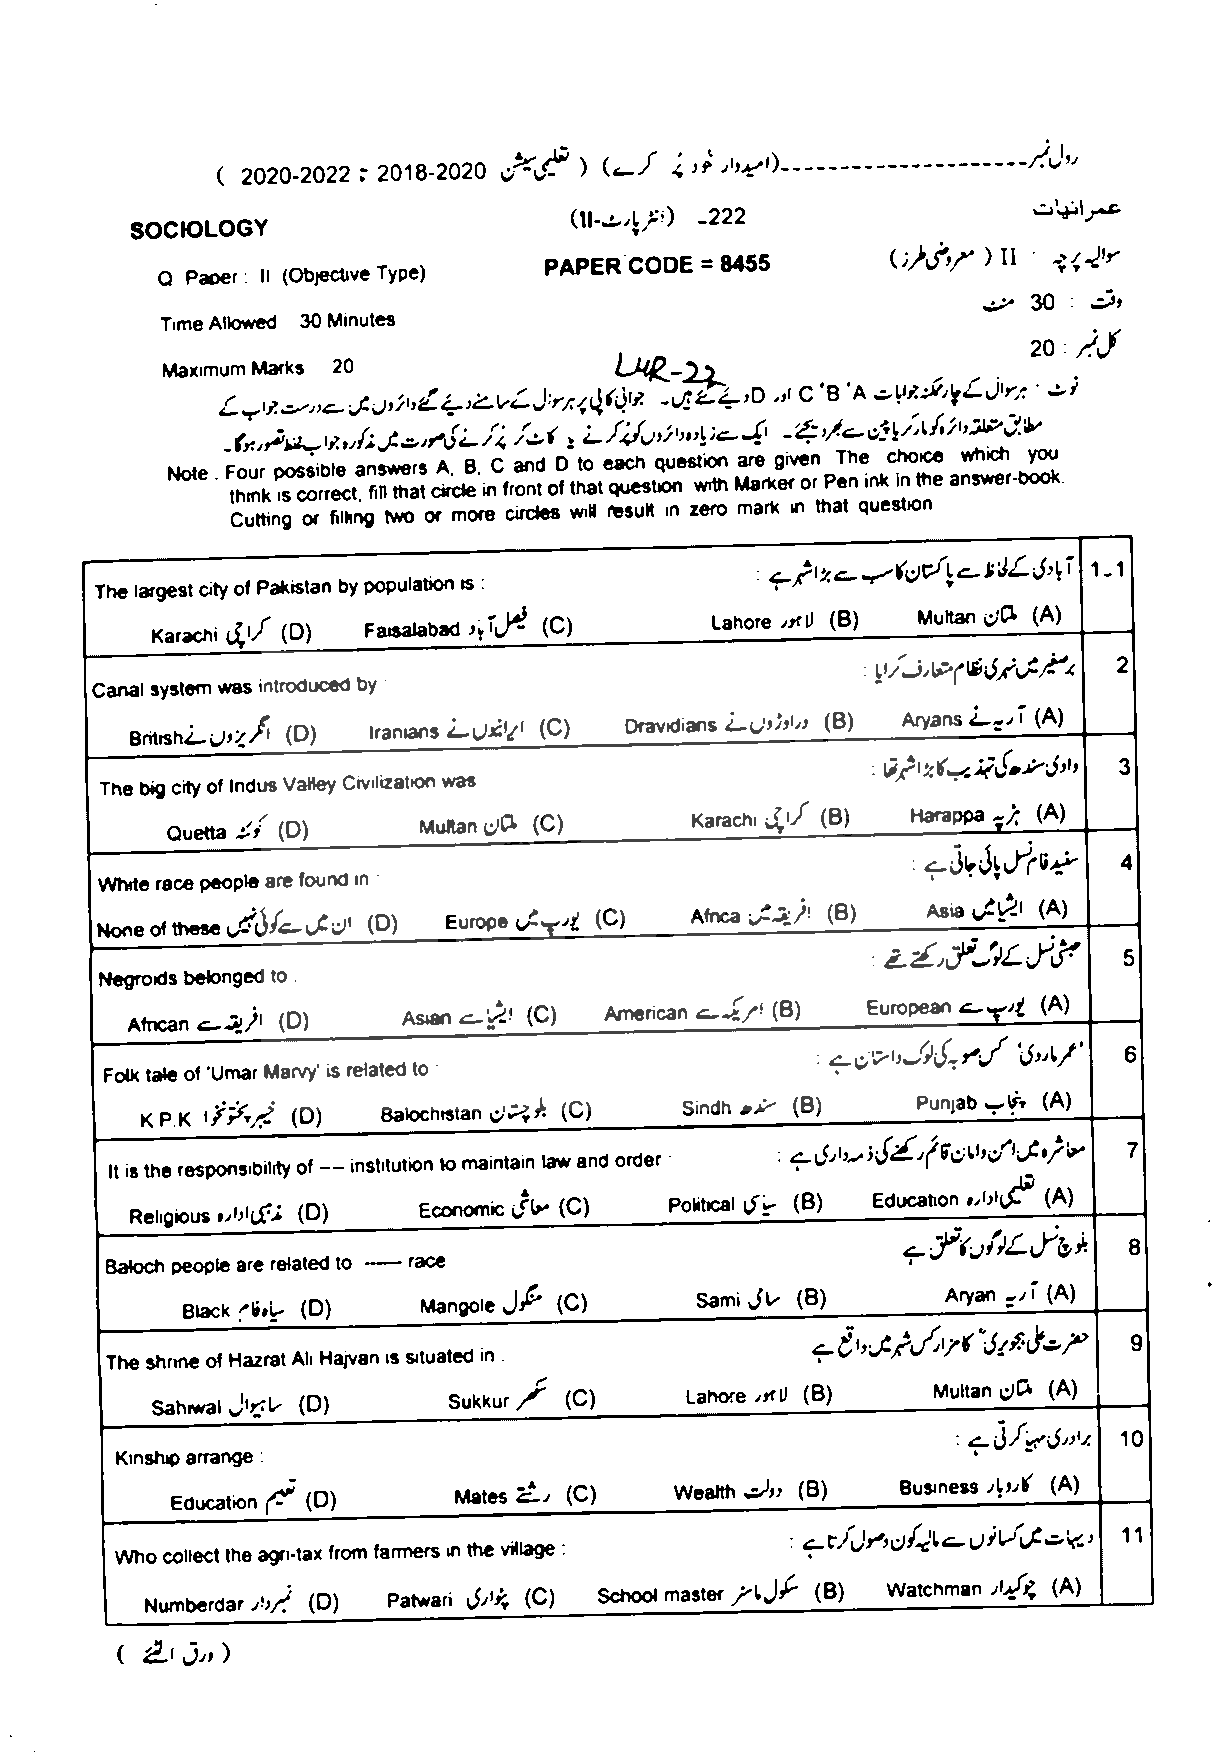 رول نمبر---------------------(امیدوار خود پُر کرے) ( تعلیمی سیشن 2018-2020 : 2020-2022 )
SOCIOLOGY (انٹر پارٹ-II) -222 عمرانیات
Q Paper : II (Objective Type) PAPER CODE = 8455 سوالیہ پرچہ : II ( معروضی طرز )
Time Allowed 30 Minutes وقت : 30 منٹ
Maximum Marks 20 کل نمبر : 20
LHR-22
نوٹ : ہر سوال کے چار ممکنہ جوابات A 'B 'C اور D دیئے گئے ہیں۔ جوابی کاپی پر ہر سوال کے سامنے دیئے گئے دائروں میں سے درست جواب کے
مطابق متعلقہ دائرہ کو مارکر یا پین سے بھر دیجئے۔ ایک سے زیادہ دائروں کو پُر کرنے یا کاٹ کر پُر کرنے کی صورت میں مذکورہ جواب غلط تصور ہوگا۔
Note . Four possible answers A, B, C and D to each question are given The choice which you
think is correct, fill that circle in front of that question with Marker or Pen ink in the answer-book.
Cutting or filling two or more circles will result in zero mark in that question
The largest city of Pakistan by population is : آبادی کے لحاظ سے پاکستان کا سب سے بڑا شہر ہے : 1-1
Karachi کراچی (D) Faisalabad فیصل آباد (C) Lahore لاہور (B) Multan ملتان (A)
Canal system was introduced by برصغیر میں نہری نظام متعارف کرایا : 2
British انگریزوں نے (D) Iranians ایرانیوں نے (C) Dravidians دراوڑوں نے (B) Aryans آریہ نے (A)
The big city of Indus Valley Civilization was وادی سندھ کی تہذیب کا بڑا شہر تھا : 3
Quetta کوئٹہ (D) Multan ملتان (C) Karachi کراچی (B) Harappa ہڑپہ (A)
White race people are found in سفید فام نسل پائی جاتی ہے : 4
None of these ان میں سے کوئی نہیں (D) Europe یورپ میں (C) Africa افریقہ میں (B) Asia ایشیا میں (A)
Negroids belonged to . حبشی نسل کے لوگ تعلق رکھتے تھے : 5
African افریقہ سے (D) Asian ایشیا سے (C) American امریکہ سے (B) European یورپ سے (A)
Folk tale of 'Umar Marvy' is related to 'عمر ماروی' کس صوبہ کی لوک داستان ہے : 6
K P.K خیبر پختونخوا (D) Balochistan بلوچستان (C) Sindh سندھ (B) Punjab پنجاب (A)
It is the responsibility of –– institution to maintain law and order معاشرہ میں امن و امان قائم رکھنے کی ذمہ داری ہے : 7
Religious مذہبی ادارہ (D) Economic معاشی (C) Political سیاسی (B) Education تعلیمی ادارہ (A)
Baloch people are related to —— race بلوچ نسل کے لوگوں کا تعلق ہے 8
Black سیاہ فام (D) Mangole منگول (C) Sami سامی (B) Aryan آریہ (A)
The shrine of Hazrat Ali Hajvari is situated in . حضرت علی ہجویریؒ کا مزار کس شہر میں واقع ہے 9
Sahiwal ساہیوال (D) Sukkur سکھر (C) Lahore لاہور (B) Multan ملتان (A)
Kinship arrange : برادری مہیا کرتی ہے : 10
Education تعلیم (D) Mates رشتے (C) Wealth دولت (B) Business کاروبار (A)
Who collect the agri-tax from farmers in the village : دیہات میں کسانوں سے مالیہ کون وصول کرتا ہے : 11
Numberdar نمبردار (D) Patwari پٹواری (C) School master سکول ماسٹر (B) Watchman چوکیدار (A)
( ورق الٹیے )